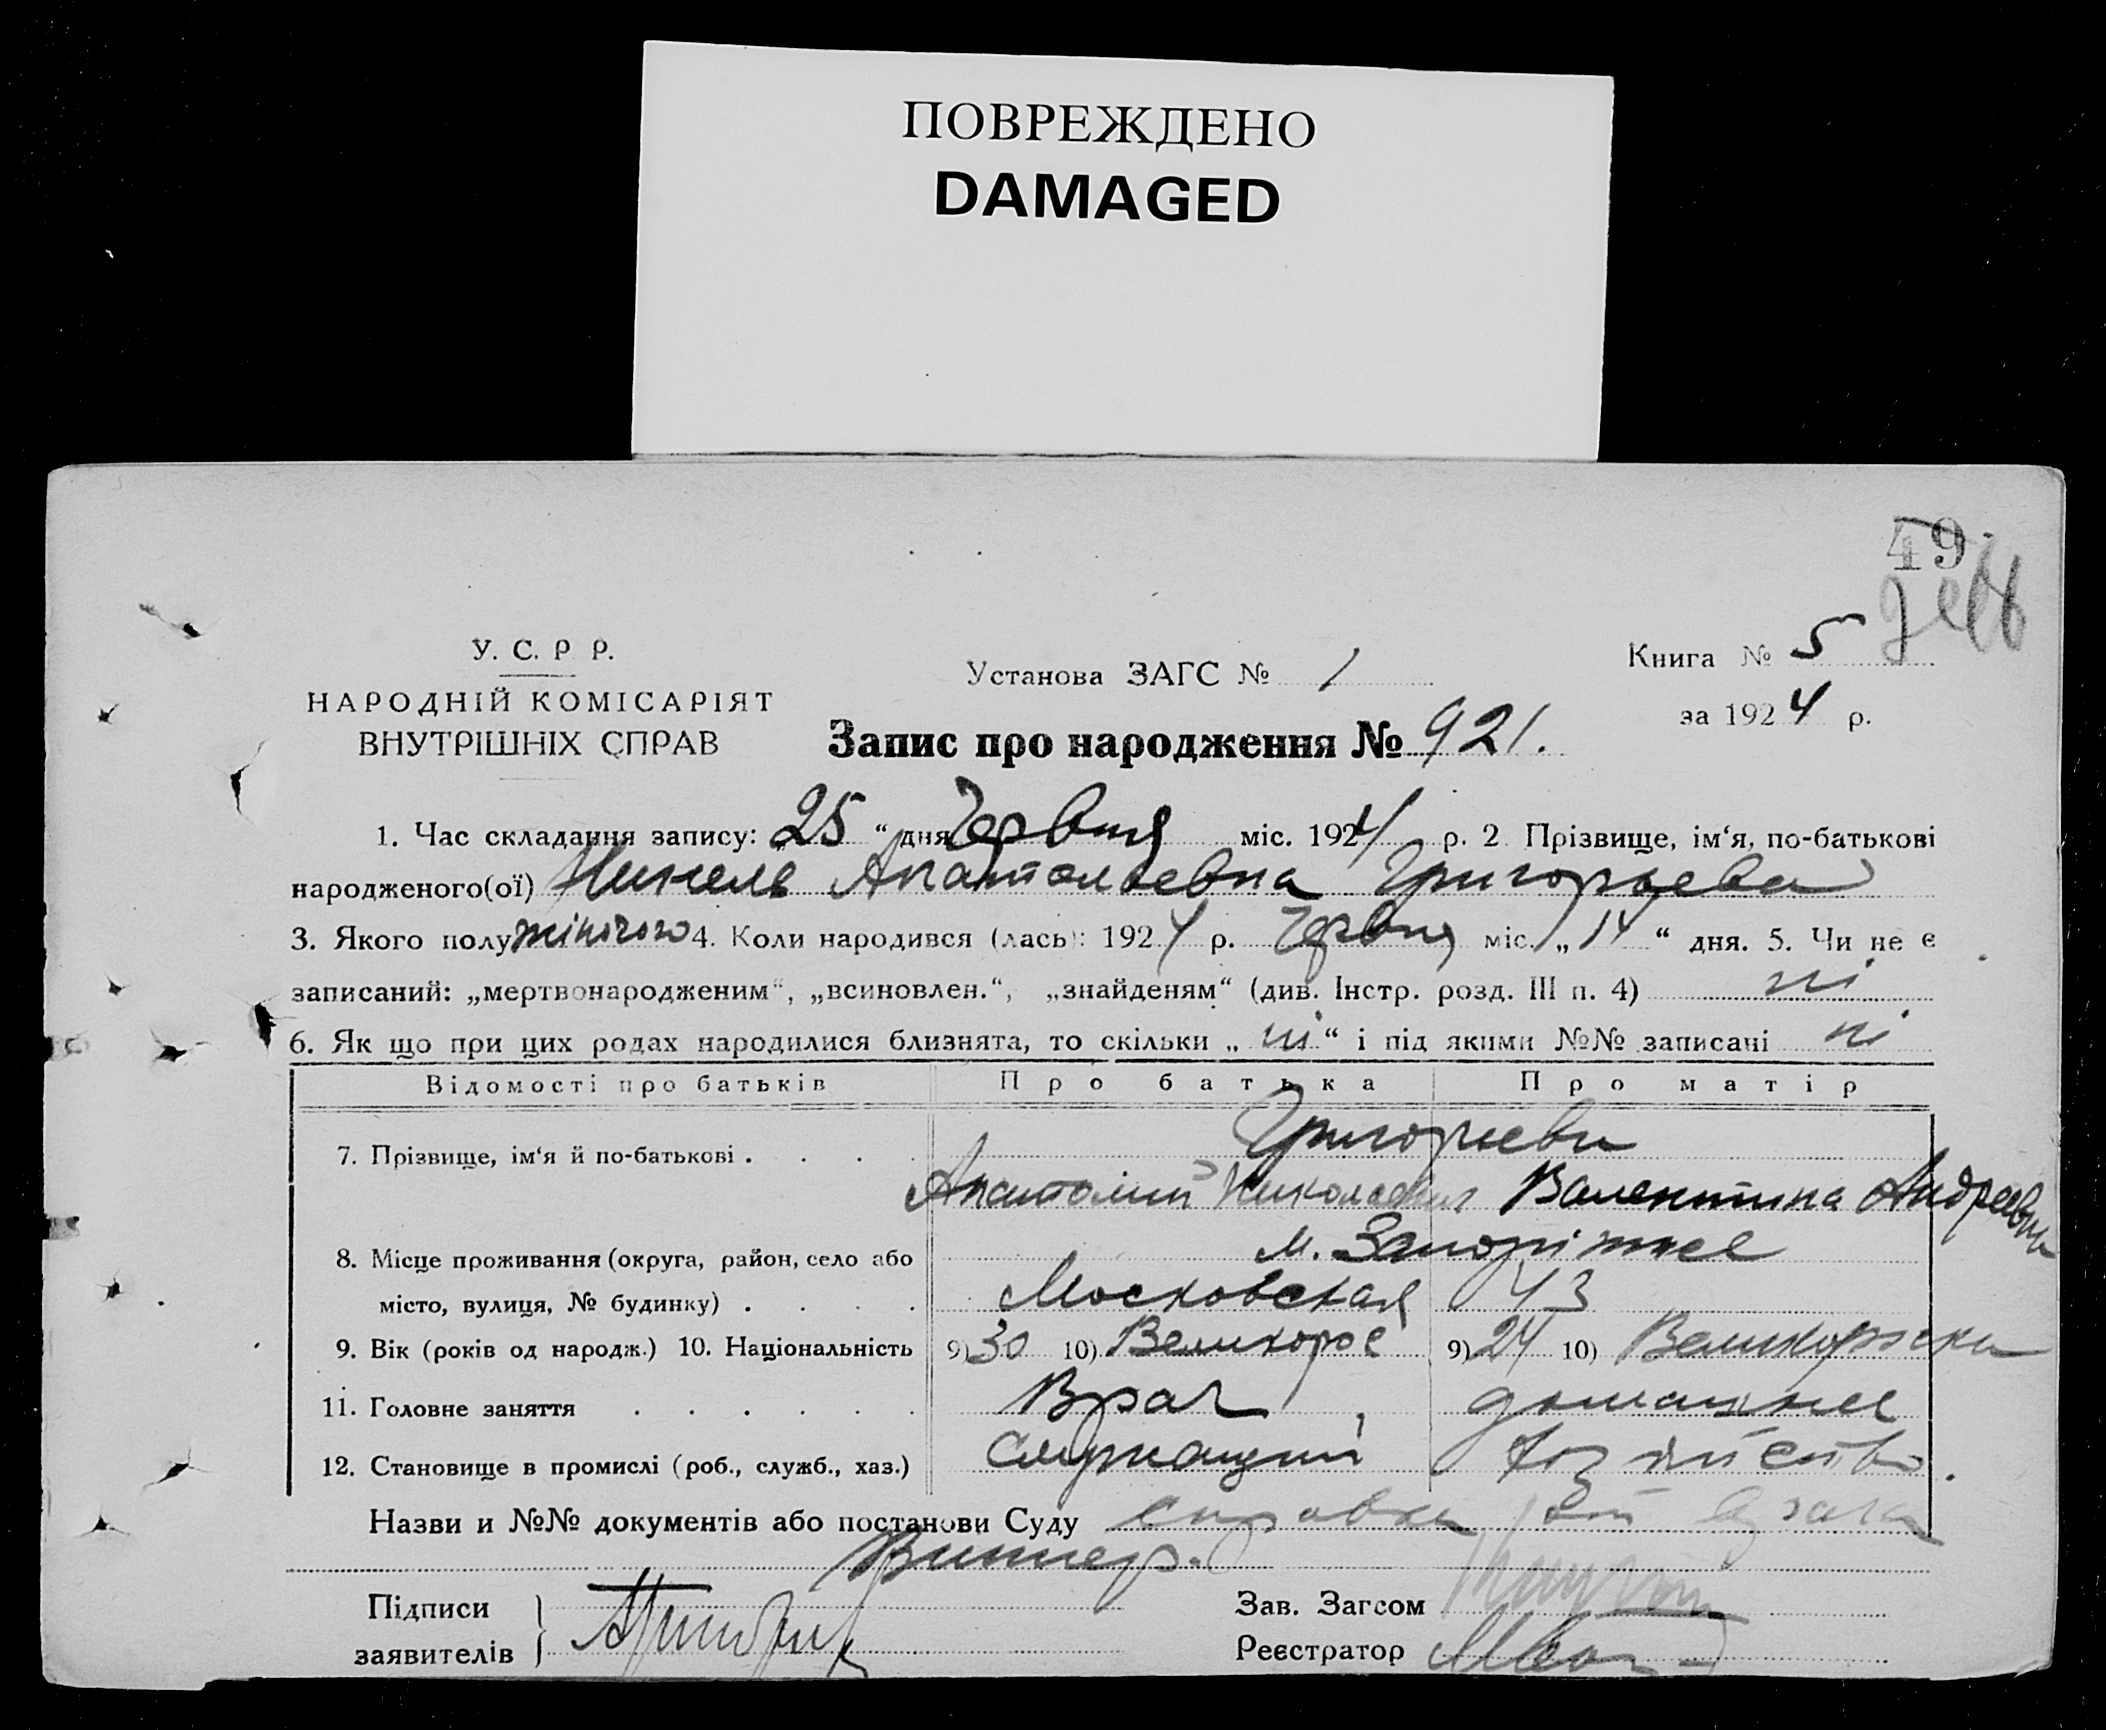 ПОВРЕЖДЕНО
DAMAGED
49
У. С. Р Р.
НАРОДНІЙ КОМІСАРІЯТ
ВНУТРІШНІХ СПРАВ
Установа ЗАГС № 1
Книга № 5
за 1924 р.
Запис про народження № 921.
1. Час складання запису: „25“ дня Червня міс. 1924 р. 2. Прізвище, ім‘я, по-батькові
народженого(ої) Нинель Анатольевна Григорьева
3. Якого полу жіночого 4. Коли народився (лась): 1924 р. Червня міс. „14“ дня. 5. Чи не є
записаний: „мертвонародженим“, „всиновлен.“, „знайденям“ (див. Інстр. розд. III п. 4) ні
6. Як що при цих родах народилися близнята, то скільки „ні“ і під якими №№ записані ні
Відомості про батьків Про батька Про матір
7. Прізвище, ім‘я й по-батькові . . . . Григорьевы
Анатолий Николаевич Валентина Андреевна
8. Місце проживання (округа, район, село або м. Запоріжжє
місто, вулиця, № будинку) . . . . Московская 43
9. Вік (років од народж.) 10. Національність 9) 30 10) Великорос 9) 24 10) Великоросска
11. Головне заняття . . . . . . Врач домашнее
12. Становище в промислі (роб., служб., хаз.) Служащий хозяйство.
Назви и №№ документів або постанови Суду справка от врача
Винтер.
Підписи
заявителів
Зав. Загсом
Реєстратор